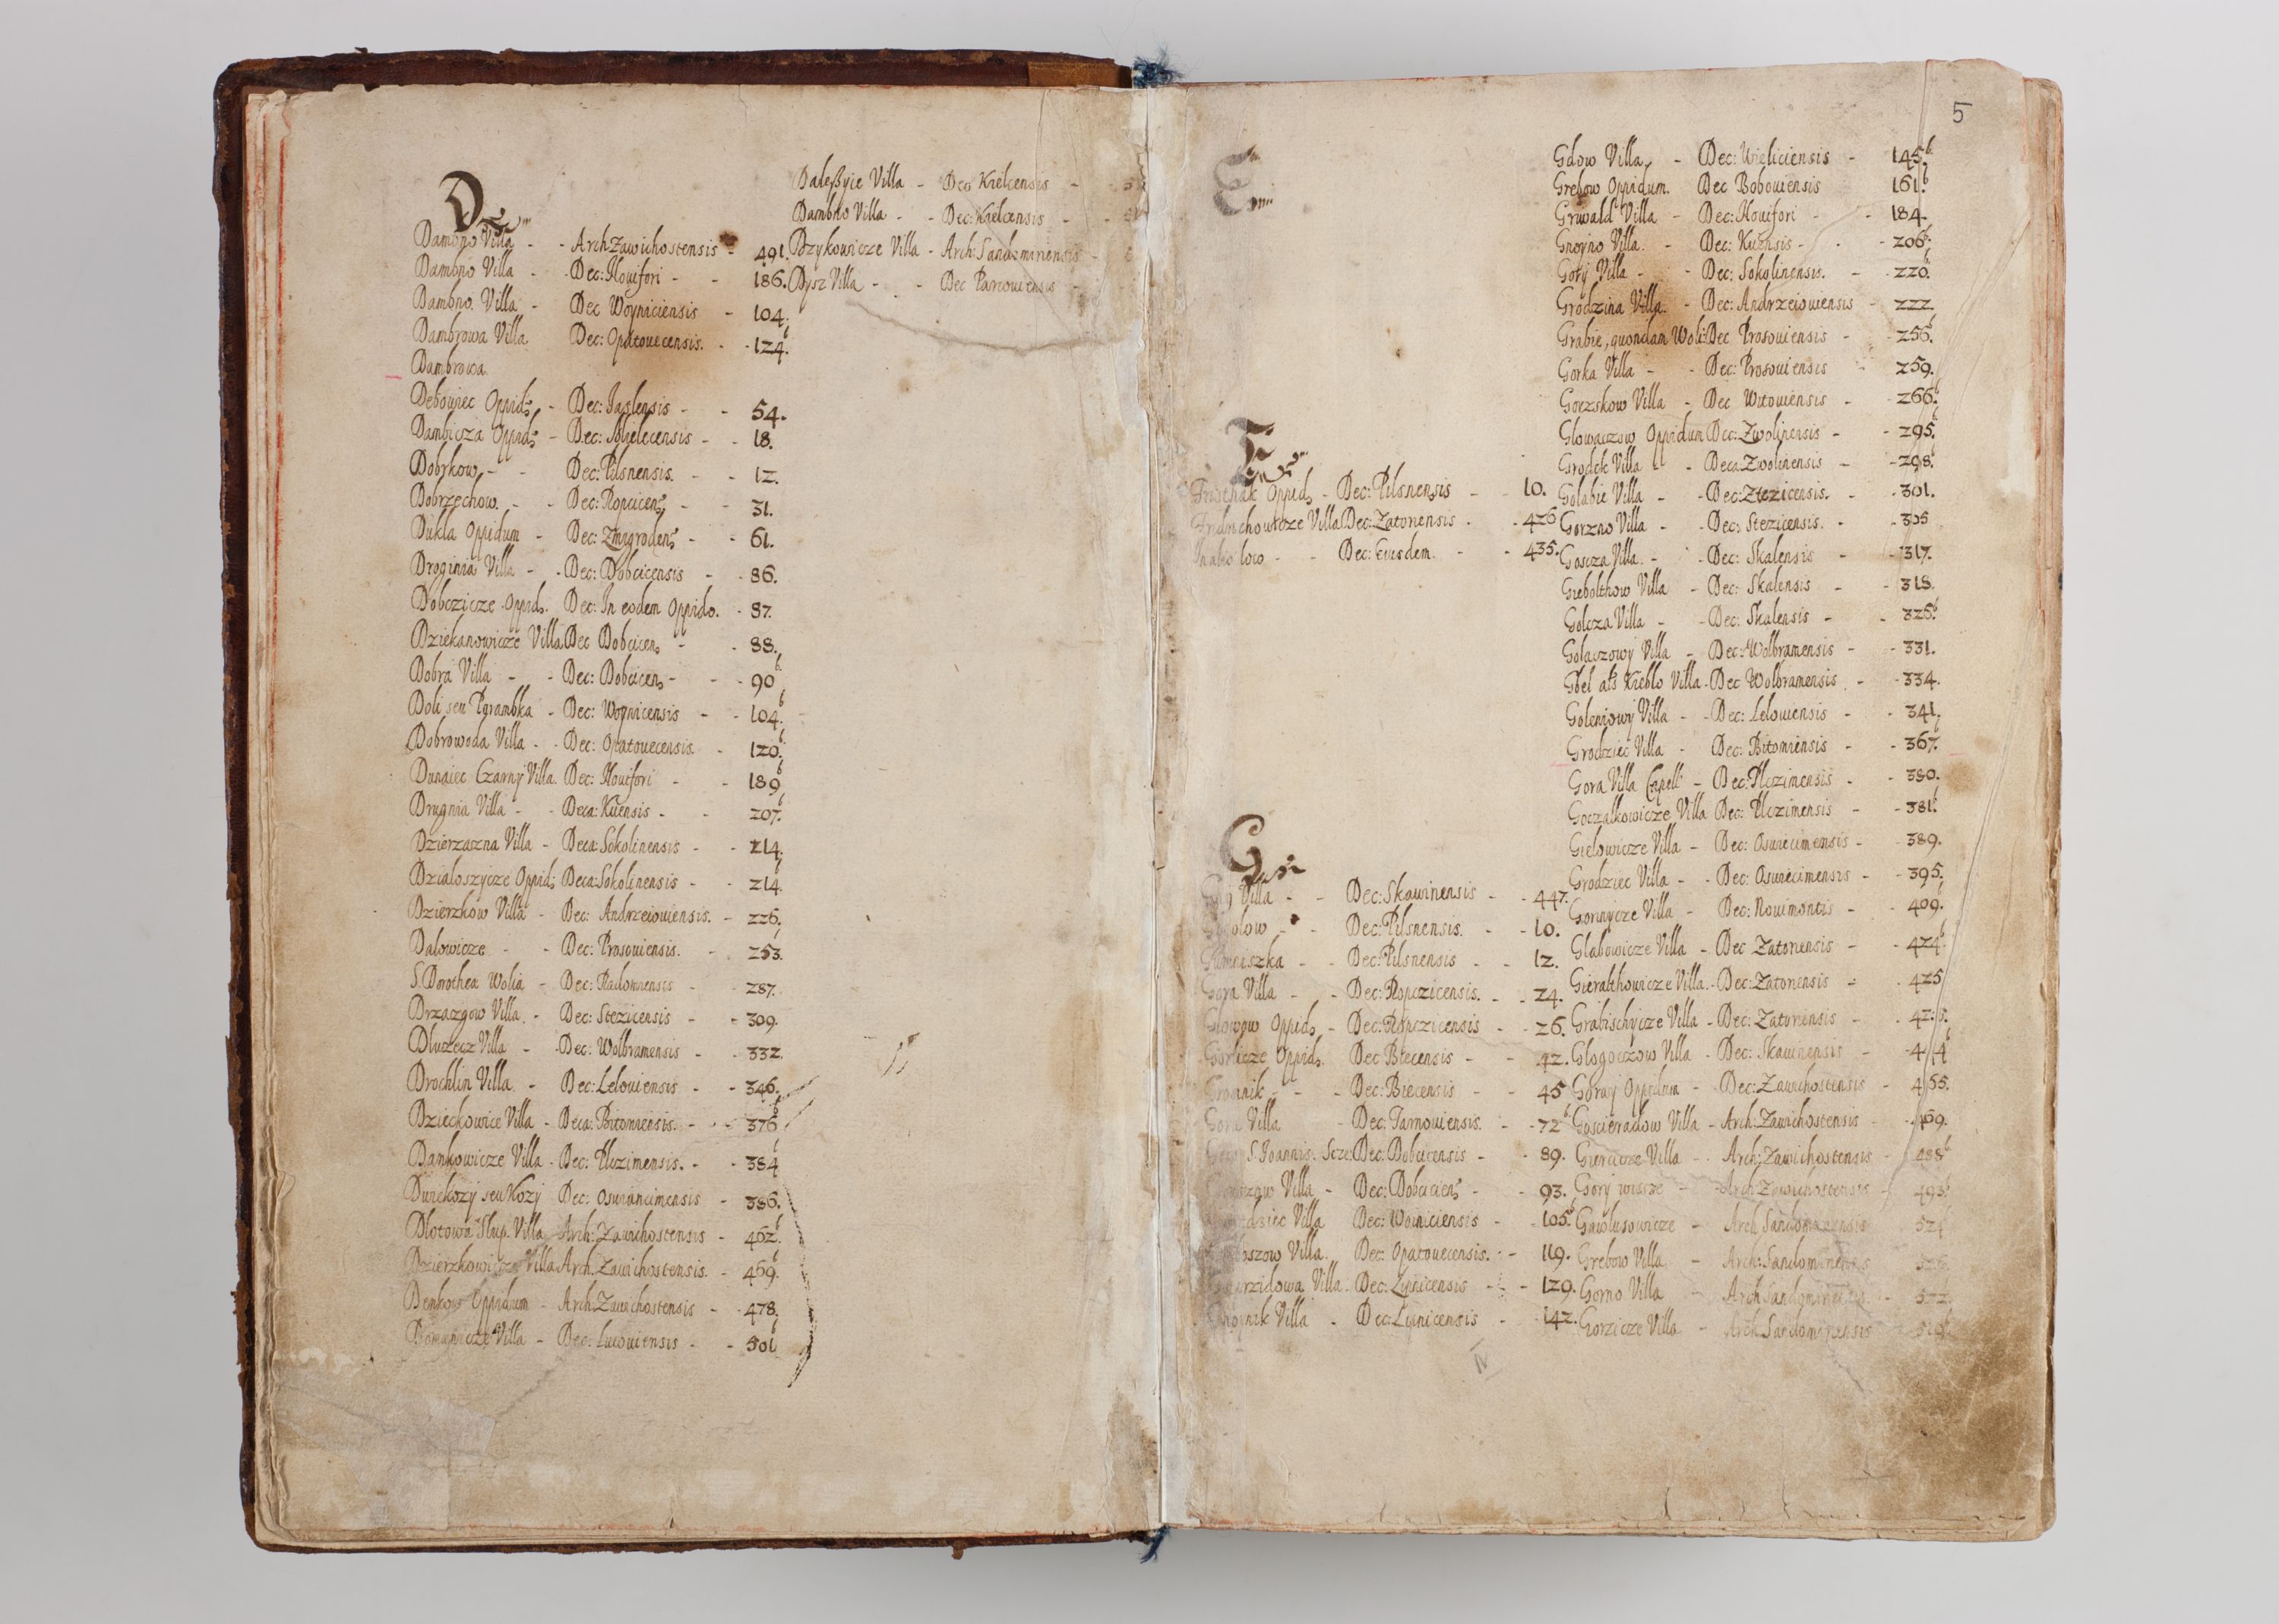 D
Dambno Villa - - Arch: Zawichostensis - 491.
Dambno Villa - - Dec: Novifori - - 186.
Dambno Villa - Dec Woyniciensis - 104.
Dambrowa Villa. Dec: Opatovecensis. - - 124.b
Dambrowa.
Debowiec Oppid. - Dec: Jaslensis - - 54.
Dambicza Oppid. - Dec: - - 18.
Dobrkow - - Dec: Pilsnensis. - - 12.
Dobrzechow. - - Dec: Ropcicen. - - 31.
Dukla Oppidum - Dec: Zmigroden. - - 61.
Droginia Villa - - Dec: Dobcicensis - - 86.
Dobczicze Oppid. Dec: In eodem Oppido. - 87.
Dziekanowicze Villa Dec Dobcicen. - - 88.
Dobra Villa - - Dec: Dobcicen. - - - 90 b
Doli seu Dec: Woynicensis - - 104.b
Dobrowoda Villa - - Dec: Opatovecensis. - 120.b
Dunaiec Czarny Villa. Dec: Novifori - - 189 b
Drugnia Villa - - Deca: Kiiensis - - 207.b
Dzierzazna Villa - Deca: Sokolinensis - - 214.
Dzialoszycze Oppid: Deca: Sokolinensis - - 214.b
Dzierzkow Villa - Dec: Andrzeioviensis. - 226.
Dalowicze - - Dec: Prosoviensis. - 253.
S. Dorothea Wolia - Dec: Radomiensis - - 287.
Drzazgow Villa. - Dec: Stezicensis - - 309.
Dluzecz Villa - - Dec: Wolbramensis - - 332.
Drochlin Villa. - Dec: Leloviensis - - 346.
Dzieckowice Villa - Deca: Bitomiensis. - - 376 b
Dankowicze Villa - Dec: Plczimensis. - - 384 b
seu Kozy Dec: - 386.
Villa Arch: Zawichostensis - 462.b
Dzierzkowicze Villa Arch. Zawichostensis. - 469.b
Denkow Oppidum - Arch: Zawichostensis - - 478.
Domanicze Villa - Dec. Lucoviensis - - 501 b
Daleßyie Villa - Dec Kielcensis -
Dambno Villa - - Dec: Kielcensis -
Dzykowicze Villa - Arch: Sandomiriensis -
Dysz Villa - - Dec Parcoviensis -
5
E
F
Oppid. - Dec: Pilsnensis - 10.
Villa Dec: Zatoriensis - - 426
- - Dec: Eiusdem. - - 435.
G
Villa - - Dec: Skawinensis - - 447.
- - Dec: Pilsnensis. - - 10.
- - Dec: Pilsnensis - - 12.
Gora Villa - - Dec: Ropczicensis. - - 24.
Glowow Oppid. - Dec: Ropczicensis - - 26.
Gorlicze Oppid. Dec Biecensis - - 42.
- - Dec: Biecensis - - 45
Gora Villa - Dec: Tarnoviensis. - - 72 b
S. Joannis. Dec: Dobcicensis - - 89.
Villa - Dec: Dobcicien. - - 93.
Villa Dec: Woiniciensis - - 105.b
Villa. Dec: Opatovecensis. - - 119.
Villa. Dec: Lipnicensis - - 129.
Villa - Dec: Lipnicensis - 142.
Gdow Villa - Dec: Wieliciensis - 145.b
Grebow Oppidum. Dec Boboviensis 161.b
Gruwald Villa - Dec: Novifori - - 184.
Gnoyno Villa. - Dec: Kiiensis - - - 206.b
Gory Villa - - Dec: Sokolinensis. - - 220.b
Grodzina Villa. - Dec: Andrzeioviensis - 222.
Grabie, quondam Woli: Dec. Prosoviensis - - 256.b
Gorka Villa - - Dec: Prosoviensis - 259.
Gorzskow Villa - Dec Witoviensis - - 266.b
Glowaczow Oppidum Dec: Zwolinensis - - 295.b
Grodek Villa - - Deca: Zwolinensis - - 298.b
Golabie Villa - - Dec: Stezicensis. - - 301.
Gorzno Villa - - Dec: Stezicensis. - - 305
Goscza Villa. - - Dec: Skalensis - - 317.
Giebolthow Villa - Dec: Skalensis - - 318.
Golcza Villa - - Dec: Skalensis - - 325.b
Golaczowy Villa - Dec: Wolbramensis - - 331.
Gbel als Kieblo Villa - Dec Wolbramensis - - 334.
Goleniowy Villa - - Dec: Leloviensis - - 341.
Grodziec Villa - Dec: Bitomiensis - - 367.b
Gora Villa Capell - Dec: Plczimensis - - 380.
Goczalkowicze Villa Dec: Plczimensis - - 381.b
Gielowicze Villa - Dec: Osviecimensis - - 389.
Grodziec Villa - - Dec: Osviecimensis - - 395.
Villa - Dec: Novimontis - - 409.b
Glabowicze Villa - Dec Zatoriensis - - 424.b
Gieralthowicze Villa. - Dec: Zatoriensis - - 425
Villa - Dec: Zatoriensis -
Glogoczow Villa - Dec: Skawinensis -
Goray Oppidum - Dec: Zawichostensis - 455.
Goscieradow Villa - Arch: Zawichostensis - - 469.
Gierczcze Villa - - Arch: Zawichostensis - 488 b
Gory - Arch: Zawichostensis - 493.b
Gawlusowicze - Arch Sandomiriensis
Grebow Villa - Arch: Sandomiriensis
Gorno Villa - Arch Sandomiriensis -
Gorzicze Villa - Arch Sandomiriensis